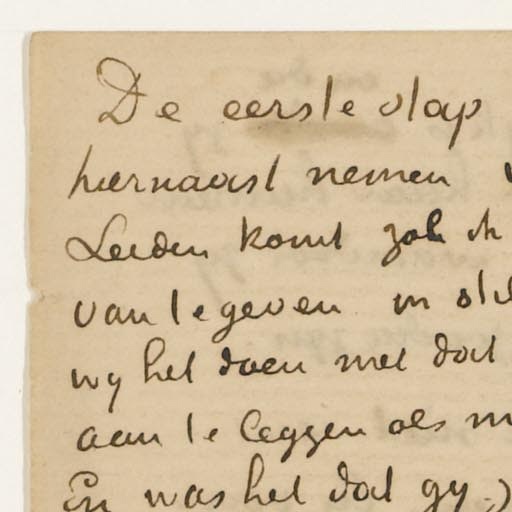 De eerste stap
hiernaast nemen
Leiden komt zal ik
van te geven in
wy het doen met dat
aan te leggen als
En was het dat gy